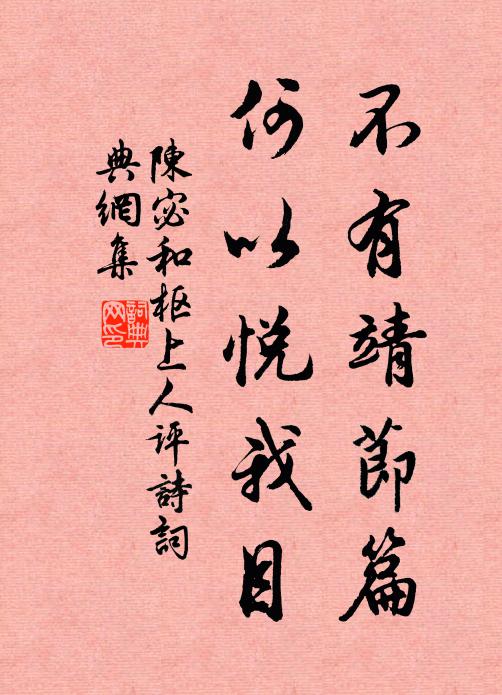 不有靖節篇
何以悅我目
陳宓和枢上人评詩詞
典網集
詞典
网印